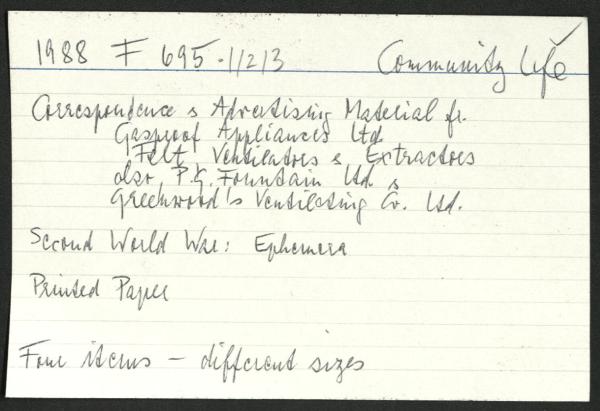 1988 F 695.1/2/3 Community Life
Correspondence & Advertising Material fr.
Gasproof Appliances Ltd
Felt Ventilators & Extractors
also P.G. Fountain Ltd. &
Greenwood's Ventilating Co. Ltd.
Second World War: Ephemera
Printed Paper
Four items - different sizes